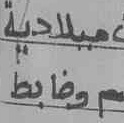 ميلادية
م وضابط